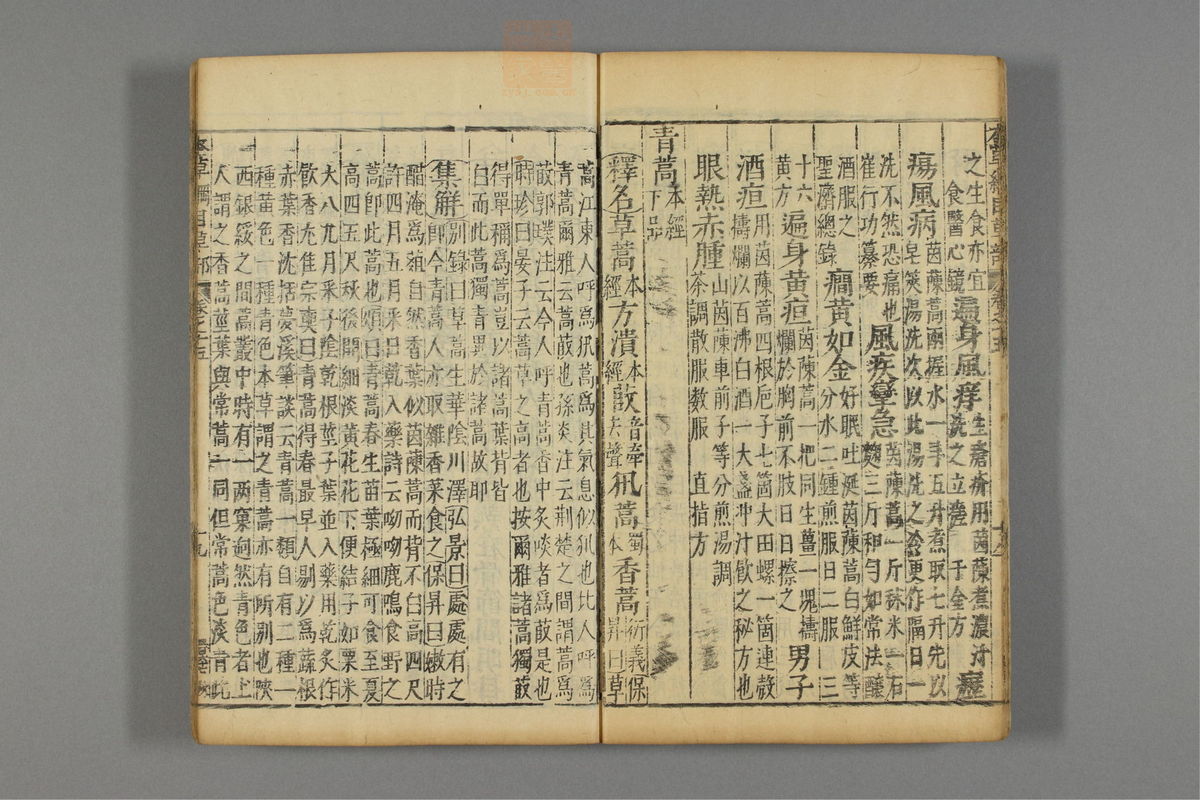 本草綱目草部 卷之十五 十八
之生食亦宜食醫心鏡 遍身風痒 生瘡疥用茵蔯煮濃汁洗之立瘥 千金方 癧
瘍風病 茵蔯蒿兩握水一手五升煮取七升先以皂筴湯洗次以此湯洗之冷更作隔日一
洗不然恐痛也崔行功纂要 風疾攣急 茵蔯蒿一斤秫米一石麴三斤和勻如常法釀
酒服之聖濟總錄 癎黃如金 好眠吐涎茵蔯蒿白鮮皮等分水二鍾煎服日二服 三
十六黃方 遍身黃疸 茵蔯蒿一把同生薑一塊擣爛於胸前不肢日日擦之 男子
酒疸 用茵蔯蒿四根巵子七箇大田螺一箇連殼擣爛以百沸白酒一大盞冲汁飲之秘方也
眼熱赤腫 山茵蔯車前子等分煎湯調茶調散服數服 直指方
青蒿本經下品
釋名草蒿本經方潰本經菣音牽去聲犼蒿蜀本香蒿衍義 保昇曰草
蒿江東人呼爲犼蒿爲其氣息似犼也北人呼爲
青蒿爾雅云蒿菣也孫炎注云荆楚之間謂蒿爲
菣郭璞注云今人呼青蒿香中炙啖者爲菣是也
時珍曰晏子云蒿草之高者也按爾雅諸蒿獨菣
得單稱爲蒿豈以諸蒿葉背皆
白而此蒿獨青異於諸蒿故耶
集解別錄曰草蒿生華陰川澤弘景曰處處有之
即今青蒿人亦取雜香菜食之保昇曰嫩時
醋淹爲葅自然香葉似茵蔯蒿而背不白高四尺
許四月五月采日乾入藥詩云呦呦鹿鳴食野之
蒿卽此蒿也頌曰青蒿春生苗葉極細可食至夏
高四五尺秋後開細淡黃花花下便結子如粟米
大八九月采子陰乾根莖子葉並入藥用乾炙作
飲香尤佳宗奭曰青蒿得春最早人剔以爲蔬根
赤葉香沈括夢溪筆談云青蒿一類自有二種一
種黃色一種青色本草謂之青蒿亦有所別也陝
西銀綏之間蒿叢中時有一兩窠迥然青色者土
人謂之香蒿莖葉與常蒿一同但常蒿色淡青此
本草綱目草部 卷之十五 十九